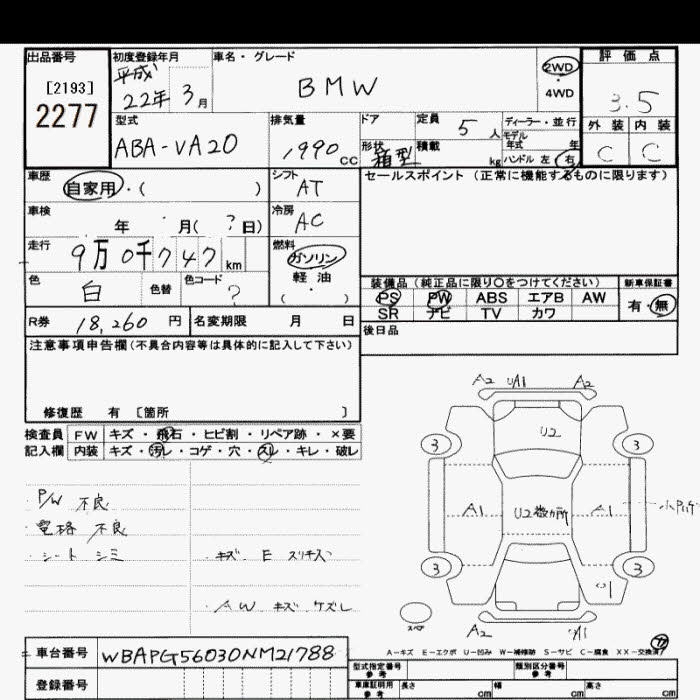 出品番号 初度登録年月 車名・グレード 評価点
[2193] 平成 2WD
2277 22年 3月 BMW ・4WD 3.5
型式 排気量 ドア 定員 5人 ディーラー・並行 外装 内装
モデル
年式 年
ABA-VA20 1990cc 形状 箱型 積載 kg ハンドル 左・右 C C
車歴 自家用・( ) シフト AT セールスポイント(正常に機能するものに限ります)
車検 年 月( ?日) 冷房 AC
走行 9万0千747km 燃料 ガソリン
軽・油
( ・ )
色 白 色替 色コード ? 装備品(純正品に限り○をつけてください) 新車保証書
PS PW ABS エアB AW 有・無
R券 18,260円 名変期限 月 日 SR ナビ TV カワ
注意事項申告欄(不具合内容等は具体的に記入して下さい) 後日品
修復歴 有 〔箇所 〕
検査員 FW キズ・飛石・ヒビ割・リペア跡・×要
記入欄 内装 キズ・汚レ・コゲ・穴・スレ・キレ・破レ
A2 UA1 A2
U2
3 3
・P/W 不良
・電格 不良
・シート シミ ・キズ E スリキズ
・AW キズ ケズレ
A1 U2数カ所 A1
3 3
U1
スペア A2 UA1
A-キズ E-エクボ U-凹み W-補修跡 S-サビ C-腐食 XX-交換済
車台番号 WBAPG56030NM21788
登録番号
型式指定番号 参考 類別区分番号 参考
車庫証明用 参考 長さ cm 幅 cm 高さ cm